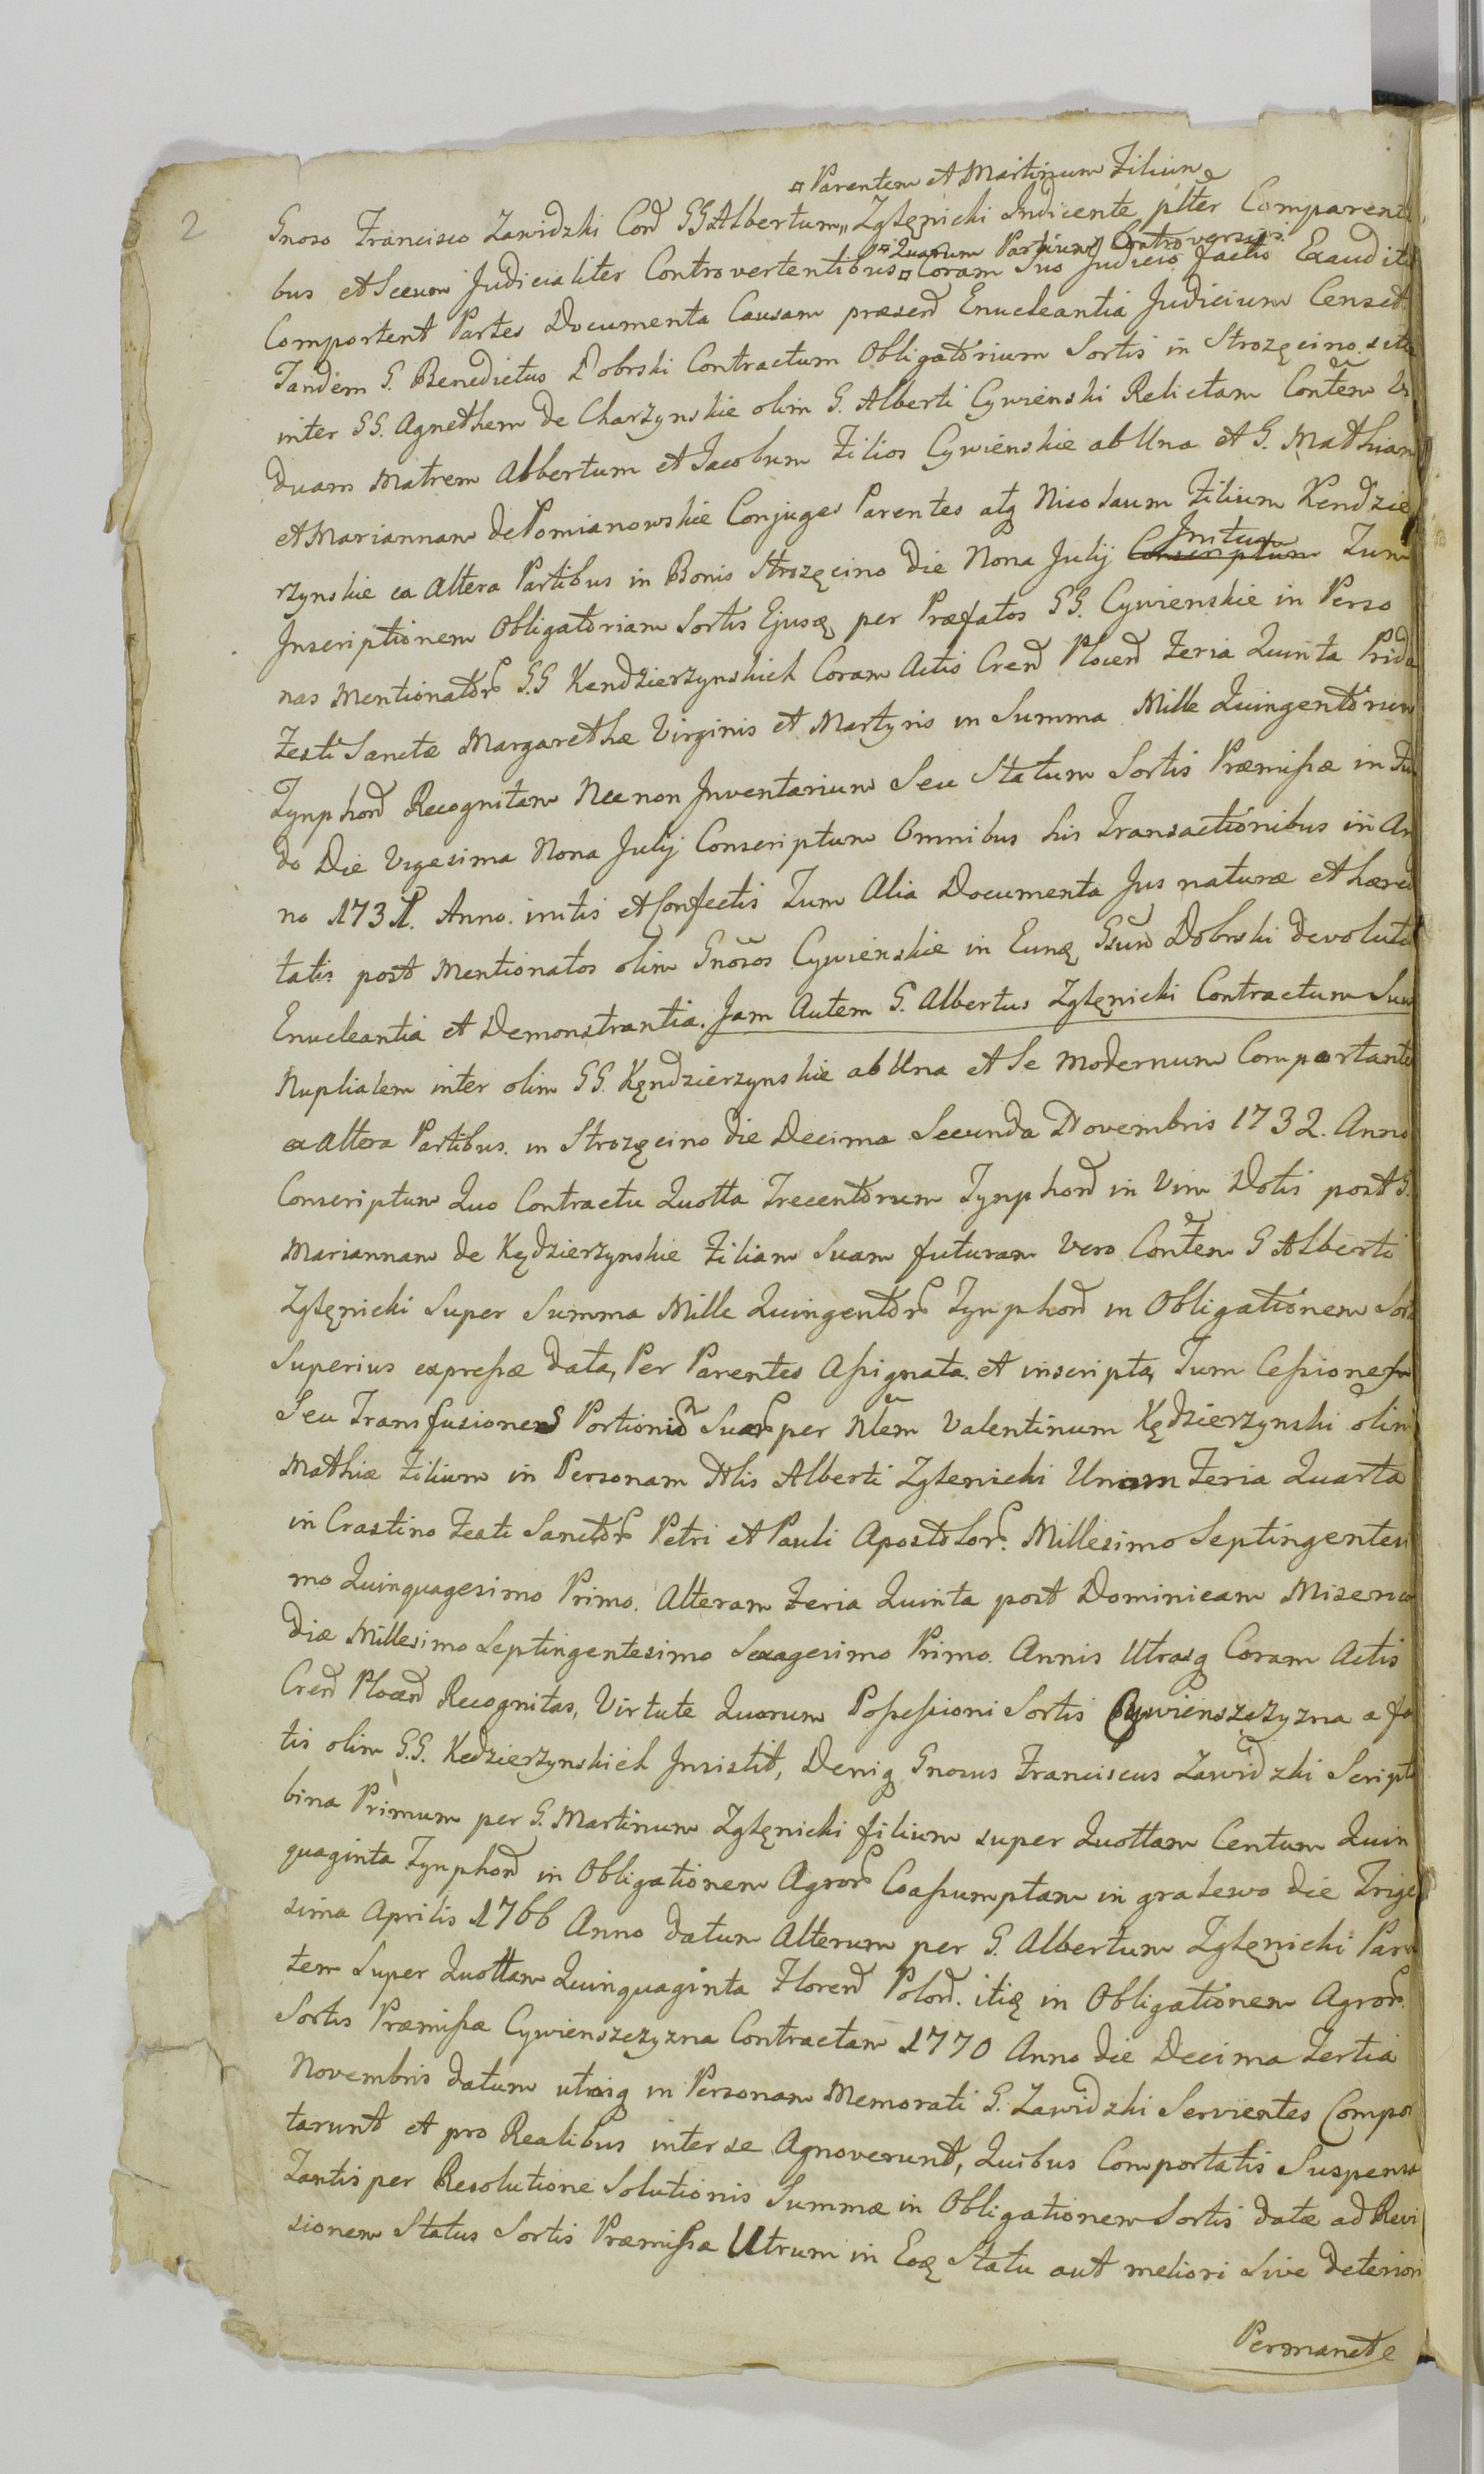 ¤ Parentem et Martinum Filium
2
Gnoso Francisco Zawidzki Cord GG Albertum,, Zglęnicki Indicente plter Comparenti
¤ Quarum Partium Controversiis
bus et Secum Judicialiter Controvertentibus ¤ Coram Suo Judicio facto Exauditis
Comportent Partes Documenta Causam præsend Enucleantia Judicium Censet.
Tandem G. Benedictus Dobrski Contractum Obligatorium Sortis in Strozęcino sitæ
inter GG. Agnethem de Charzynskie olim G. Alberti Cywienski Relictam Contem Vi
duam Matrem Albertum et Jacobum Filios Cywienskie ab Una et G. Mathiam
et Mariannam de Pomianowskie Conjuges Parentes atq Nicolaum Filium Kendzie
Initum
rzynskie ex Altera Partibus in Bonis Strozęcino die Nona Julij Conscriptum Tum
Inscriptionem Obligatoriam Sortis Ejusq per Præfatos GG. Cywienskie in Perso
nas Mentionator G.G Kendzierzynskich Coram Actis Crend Plocend Feria Quinta Pridie
Festi Sanctæ Margarethæ Virginis et Martyris in Summa Mille Quingentorum
Tynphord Recognitam Nec non Inventarium Seu Statum Sortis Præmissæ in Fun
do Die Vigesima Nona Julij Conscriptum Omnibus his Transactionibus in An
no 1731. Anno. initis et Confectis Tum Alia Documenta Jus naturæ et hæredi
tatis post Mentionatos olim Gnosos Cywienskie in Eunq Gsum Dobrski devoluti
Enucleantia et Demonstrantia. Jam Autem G. Albertus Zglęnicki Contractum Suum
Nuptialem inter olim GG. Kęndzierzynskie ab Una et Se Modernum Comportante
ex Altera Partibus. in Strozęcino die Decima Secunda Novembris 1732. Anno
Conscriptum Quo Contractu Quotta Trecentorum Tynphord in Vim Dotis post G.
Mariannam de Kędzierzynskie Filiam Suam futuram Vero Contem G Alberti
Zglęnicki Super Summa Mille Quingentor Tynphord in Obligationem Sortis
Superius expressæ data, Per Parentes Assignata. et inscripta, Tum Cessionem
Seu Transfusiones Portionis Suar per Nlem Valentinum Kędzierzynski olim
Mathiæ Filium in Personam Nlis Alberti Zglenicki Unam Feria Quarta
in Crastino Festi Sanctor Petri et Pauli Apostolor. Millesimo Septingentesi
mo Quinquagesimo Primo. Alteram Feria Quinta post Dominicam Misericor
diæ Millesimo Septingentesimo Sexagesimo Primo. Annis Utrasq Coram Actis
Crend Plocend Recognitas, Virtute Quorum Possessioni Sortis Cywienszczyzna a fa
tis olim G.G. Kedzierzynskich Insistit, Deniq Gnosus Franciscus Zawidzki Scripta
bina Primum per G. Martinum Zglęnicki filium super Quottam Centum Quin
quaginta Tynphord in Obligationem Agror Coassumptam in gralewo die Trige
sima Aprilis 1766 Anno datum Alterum per G. Albertum Zglęnicki Paren
tem Super Quottam Quinquaginta Florend Polond. itiq in Obligationem Agror.
Sortis Præmissæ Cywienszczyzna Contractam 1770 Anno die Decima Tertia
Novembris datum utrisq in Personam Memorati G. Zawidzki Servientes Compor
tarunt et pro Realibus inter se Agnoverunt, Quibus Comportatis Suspensa
Tantisper Resolutione Solutionis Summæ in Obligationem Sortis datæ ad Revi
sionem Status Sortis Præmissæ Utrum in Eoq Statu aut meliori Sive deteriori
Permanet